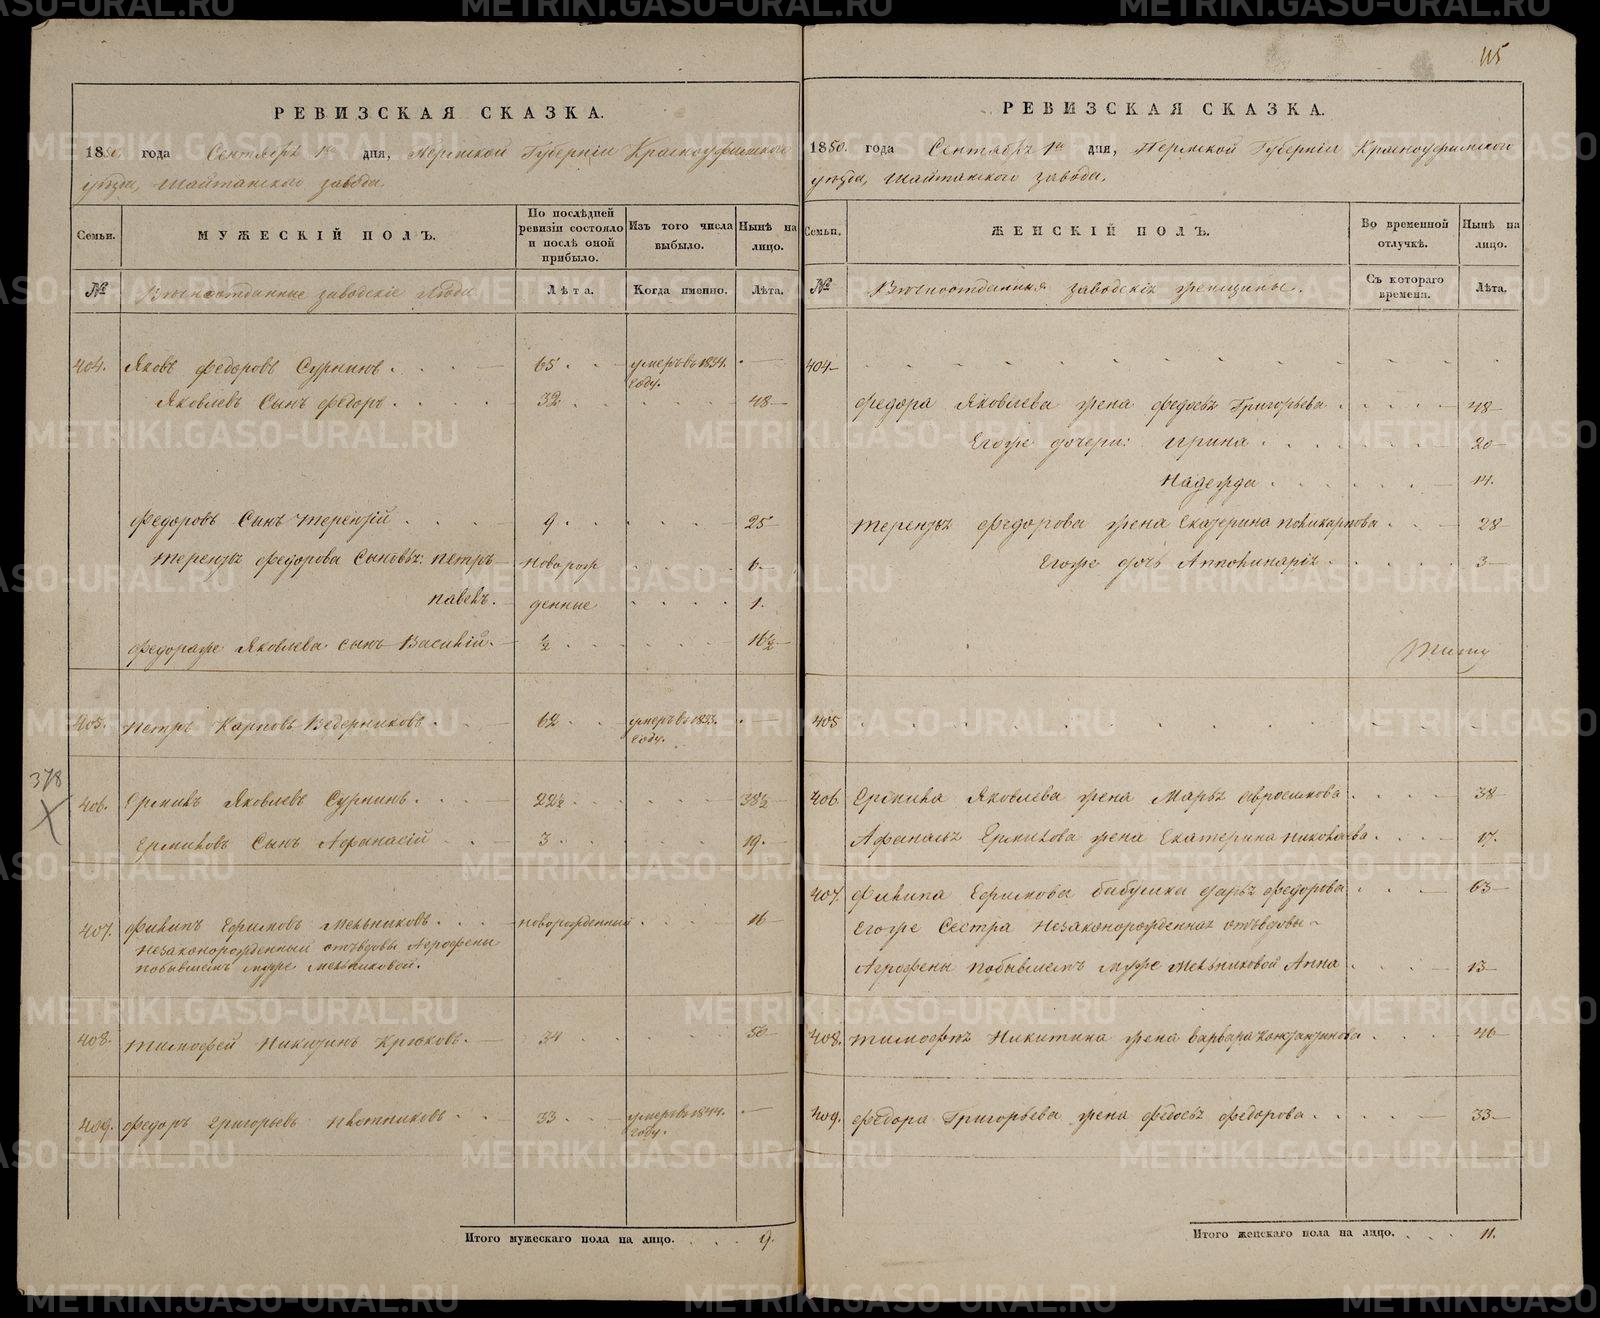 115
РЕВИЗСКАЯ СКАЗКА.
1850. года Сентября 1го дня, Пермской Губерніи Красноуфимскаго
уезда, Шайтанскаго завода.
Семьи.
МУЖЕСКІЙ ПОЛЪ.
По послѣдней ревизіи состояло и послѣ оной прибыло.
Изъ того числа выбыло.
Нынѣ на лицо.
№
Вечноотданные заводскіе люди
Лѣта.
Когда именно.
Лѣта.
404. Яковъ Федоровъ Сурнинъ 65 умеръ въ 1834. году.
Яковлевъ Сынъ Федоръ 32 48
Федоровъ Сынъ Терентій 9. 25
Терентья Федорова Сыновья: Петръ Новорож 6.
Павелъ. денные 1.
Федора же Яковлева сынъ Василій. ½ 16½
405. Петръ Карповъ Ведерниковъ 62 умеръ въ году.
406. Ермилъ Яковлевъ Сурнинъ. 22½ 38½
Ермиловъ Сынъ Афанасій 3 19.
407. Филипъ Ефимовъ Мельниковъ. новорожденный 16
Незаконорожденный отъ вдовы Агрофены
по бывшемъ муже Мельниковой.
408. Тимофей Никитинъ Крюковъ. 34 50
409. Федоръ Григорьевъ Плотниковъ 33 умеръ въ 1844. году.
378
Итого мужескаго пола на лицо. 9.
РЕВИЗСКАЯ СКАЗКА.
1850. года Сентября 1го дня, Пермской Губерніи Красноуфимскаго
уезда, Шайтанскаго завода.
Семьи.
ЖЕНСКІЙ ПОЛЪ.
Во временной отлучкѣ.
Нынѣ на лицо.
№
Вечноотданныя заводскія женщины.
Съ котораго времена.
Лѣта.
404
Федора Яковлева жена Федосья Григорьева 48
Егоже дочери: Ирина 20
Надежда 14.
Терентья Федорова жена Екатерина Поликарпова 28
Егоже дочь Апполинарія 3
405
406. Ермила Яковлева жена Марья 38
Афанасья Ермилова жена Екатерина Николаева 17.
407. Филипа Ефимова бабушка Дарья Федорова 63
Егоже Сестра Незаконорожденная отъ вдовы
Агрофены по бывшемъ муже Мельниковой Анна 13
408. Тимофея Никитина жена Варвара Константинова 46
409. Федора Григорьева жена Федосья Федорова 33
Итого женскаго пола на лицо. 11.
METRIKI.GASO-URAL.RU